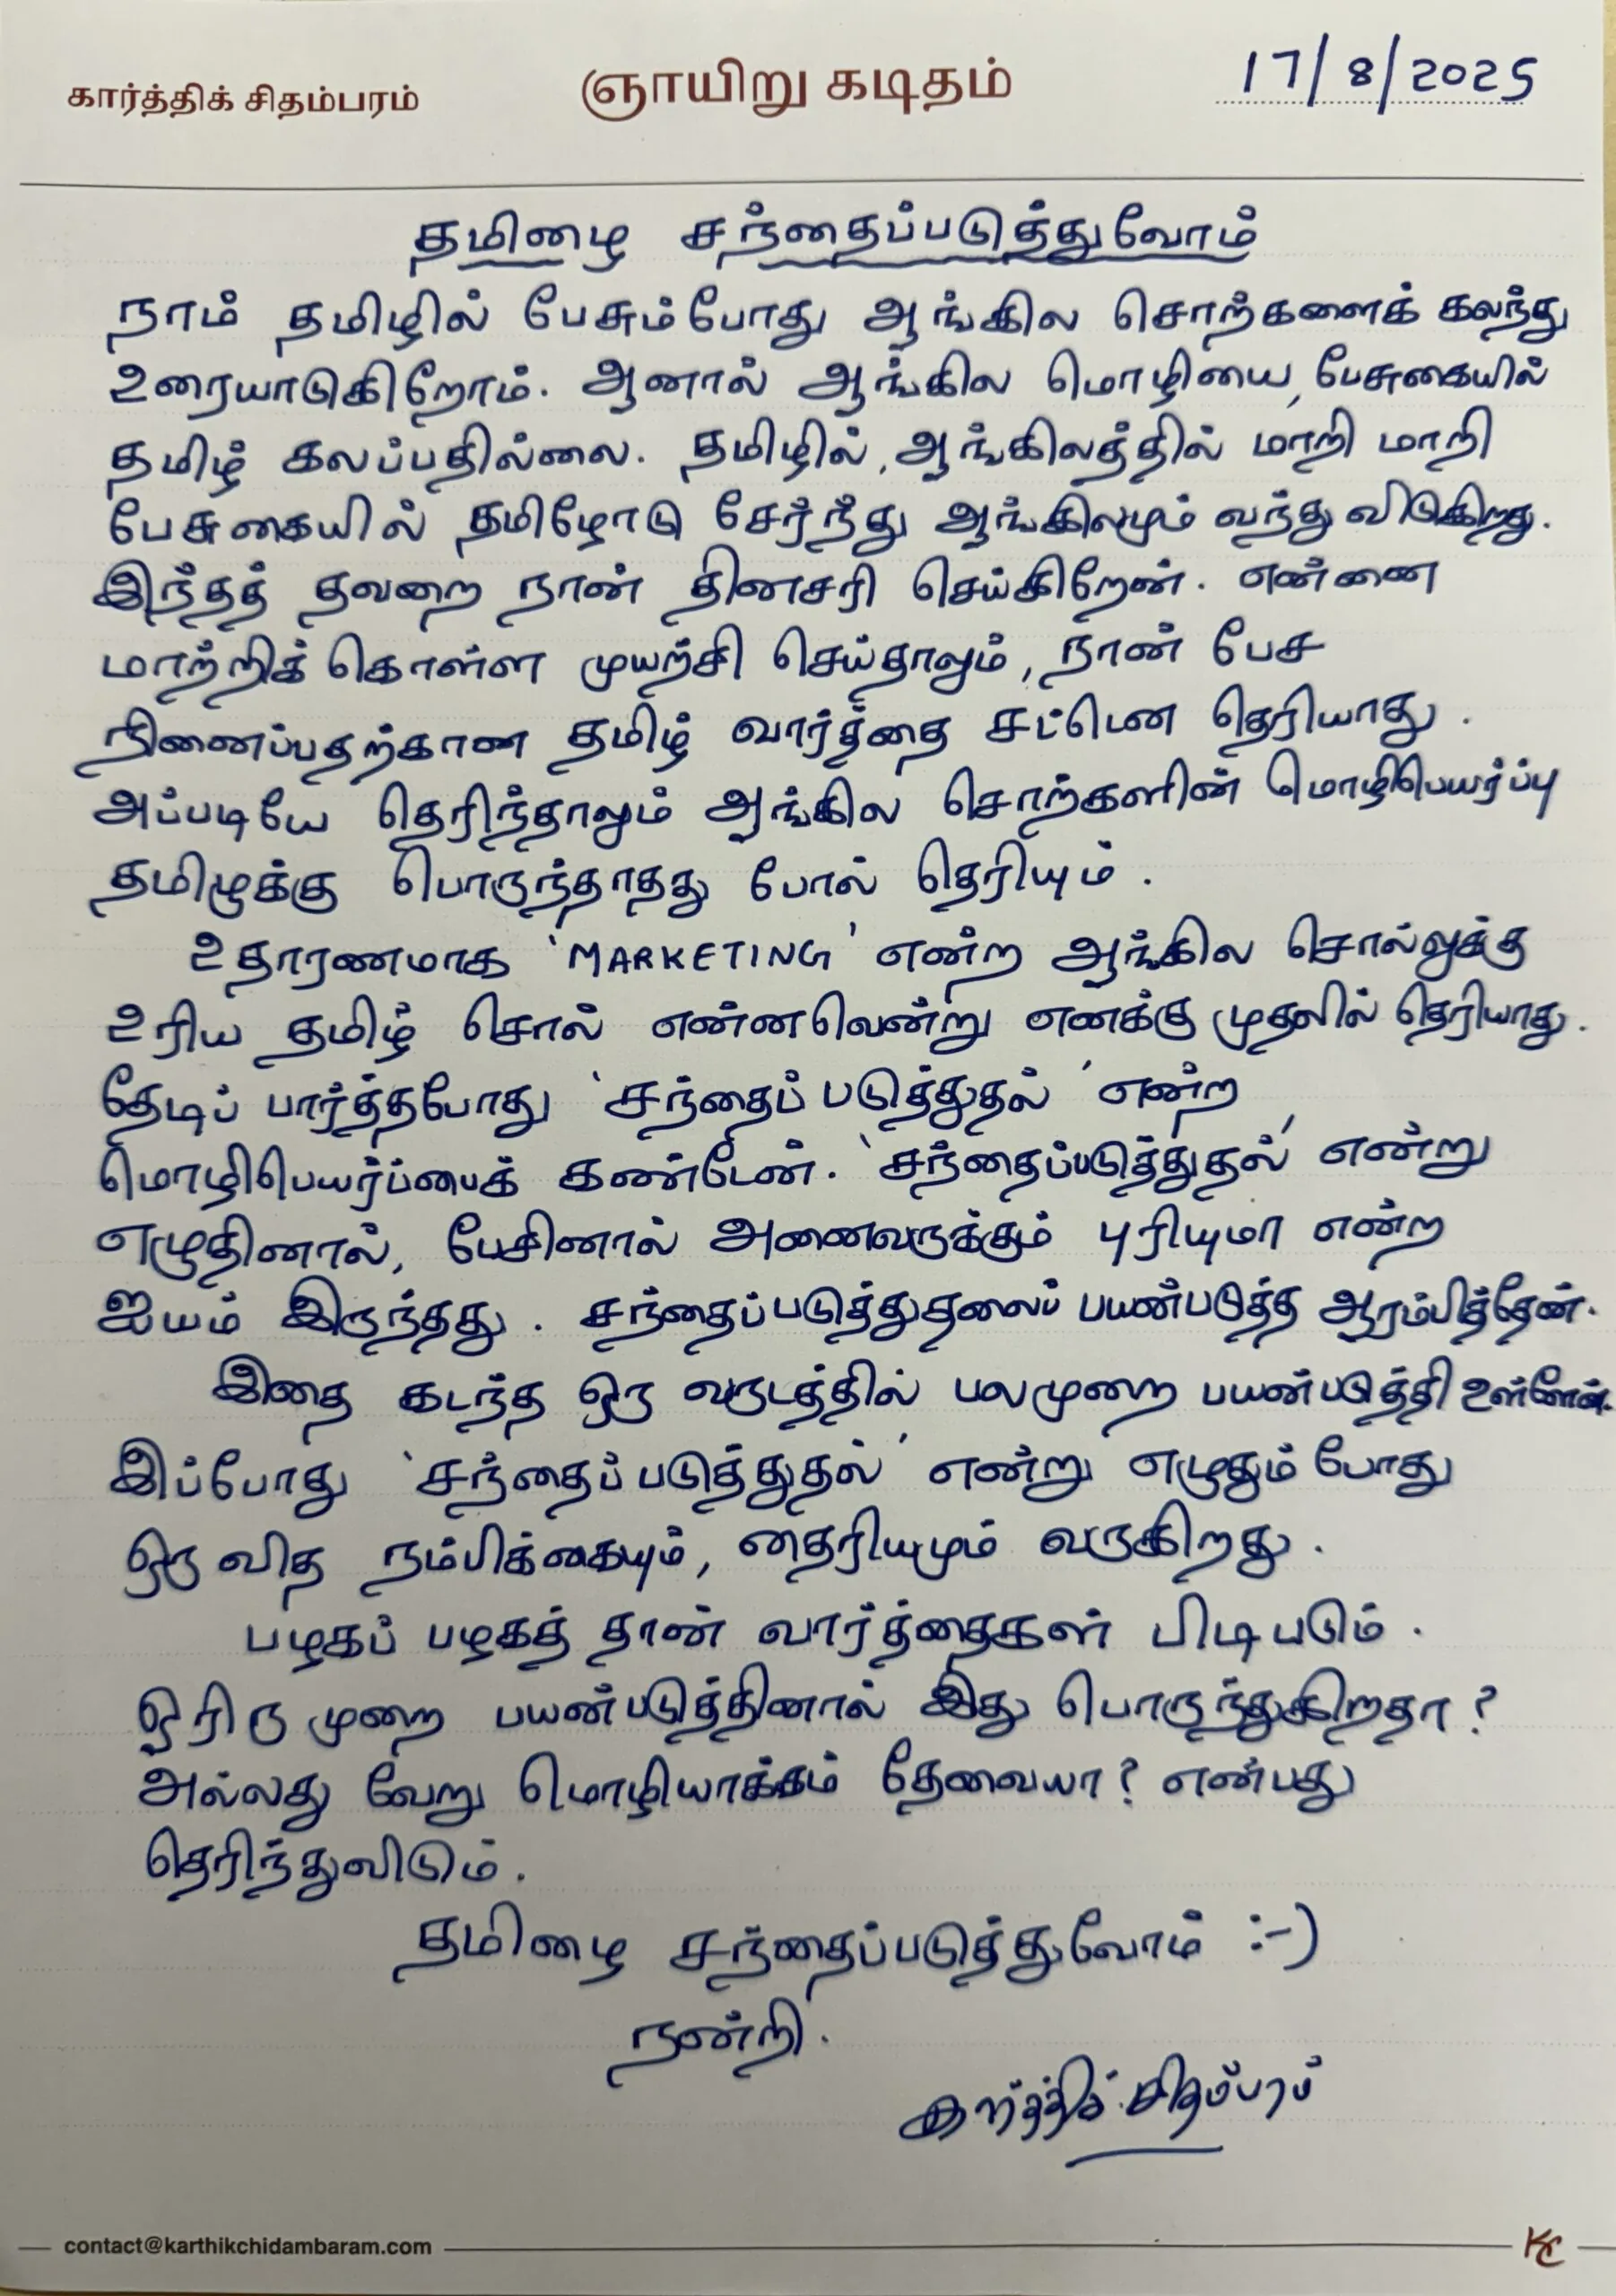 கார்த்திக் சிதம்பரம் ஞாயிறு கடிதம் 17/8/2025
தமிழை சந்தைப்படுத்துவோம்
நாம் தமிழில் பேசும்போது ஆங்கில சொற்களைக் கலந்து
உரையாடுகிறோம். ஆனால் ஆங்கில மொழியை, பேசுகையில்
தமிழ் கலப்பதில்லை. தமிழில், ஆங்கிலத்தில் மாறி மாறி
பேசுகையில் தமிழோடு சேர்ந்து ஆங்கிலமும் வந்து விடுகிறது.
இந்தத் தவறை நான் தினசரி செய்கிறேன். என்னை
மாற்றிக் கொள்ள முயற்சி செய்தாலும், நான் பேச
நினைப்பதற்கான தமிழ் வார்த்தை சட்டென தெரியாது.
அப்படியே தெரிந்தாலும் ஆங்கில சொற்களின் மொழிபெயர்ப்பு
தமிழுக்கு பொருந்தாதது போல் தெரியும்.
உதாரணமாக 'MARKETING' என்ற ஆங்கில சொல்லுக்கு
உரிய தமிழ் சொல் என்னவென்று எனக்கு முதலில் தெரியாது.
தேடிப் பார்த்தபோது 'சந்தைப் படுத்துதல்' என்ற
மொழிபெயர்ப்பைக் கண்டேன். 'சந்தைப்படுத்துதல்' என்று
எழுதினால், பேசினால் அனைவருக்கும் புரியுமா என்ற
ஐயம் இருந்தது. சந்தைப்படுத்துதலைப் பயன்படுத்த ஆரம்பித்தேன்.
இதை கடந்த ஒரு வருடத்தில் பலமுறை பயன்படுத்தி உள்ளேன்.
இப்போது 'சந்தைப் படுத்துதல்' என்று எழுதும் போது
ஒரு வித நம்பிக்கையும், தைரியமும் வருகிறது.
பழகப் பழகத் தான் வார்த்தைகள் பிடிபடும்.
ஓரிரு முறை பயன்படுத்தினால் இது பொருந்துகிறதா?
அல்லது வேறு மொழியாக்கம் தேவையா? என்பது
தெரிந்துவிடும்.
தமிழை சந்தைப்படுத்துவோம் :-)
நன்றி.
கார்த்திக் சிதம்பரம்
contact@karthikchidambaram.com KC